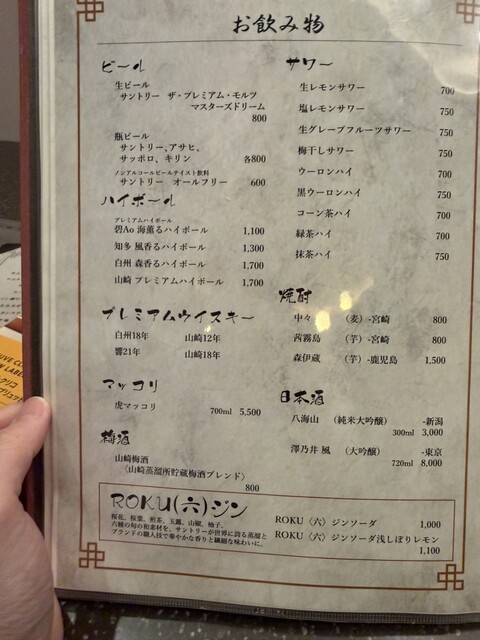 お飲み物
ビール
生ビール
サントリー ザ・プレミアム・モルツ
マスターズドリーム
800
瓶ビール
サントリー、アサヒ、
サッポロ、キリン 各800
ノンアルコールビールテイスト飲料
サントリー オールフリー 600
ハイボール
プレミアムハイボール
碧Ao 海薫るハイボール 1,100
知多 風香るハイボール 1,300
白州 森香るハイボール 1,700
山崎 プレミアムハイボール 1,700
プレミアムウイスキー
白州18年 山崎12年
響21年 山崎18年
マッコリ
虎マッコリ 700ml 5,500
梅酒
山崎梅酒
〈山崎蒸溜所貯蔵梅酒ブレンド〉
800
サワー
生レモンサワー 700
塩レモンサワー 750
生グレープフルーツサワー 750
梅干しサワー 750
ウーロンハイ 700
黒ウーロンハイ 750
コーン茶ハイ 700
緑茶ハイ 700
抹茶ハイ 750
焼酎
中々 （麦）-宮崎 800
茜霧島 （芋）-宮崎 800
森伊蔵 （芋）-鹿児島 1,500
日本酒
八海山 （純米大吟醸） -新潟
300ml 3,000
澤乃井 凰 （大吟醸） -東京
720ml 8,000
ROKU(六)ジン
桜花、桜葉、煎茶、玉露、山椒、柚子、
六種の旬の和素材を、サントリーが世界に誇る蒸溜と
ブレンドの職人技で華やかな香りと繊細な味わいに。
ROKU〈六〉ジンソーダ 1,000
ROKU〈六〉ジンソーダ浅しぼりレモン
1,100